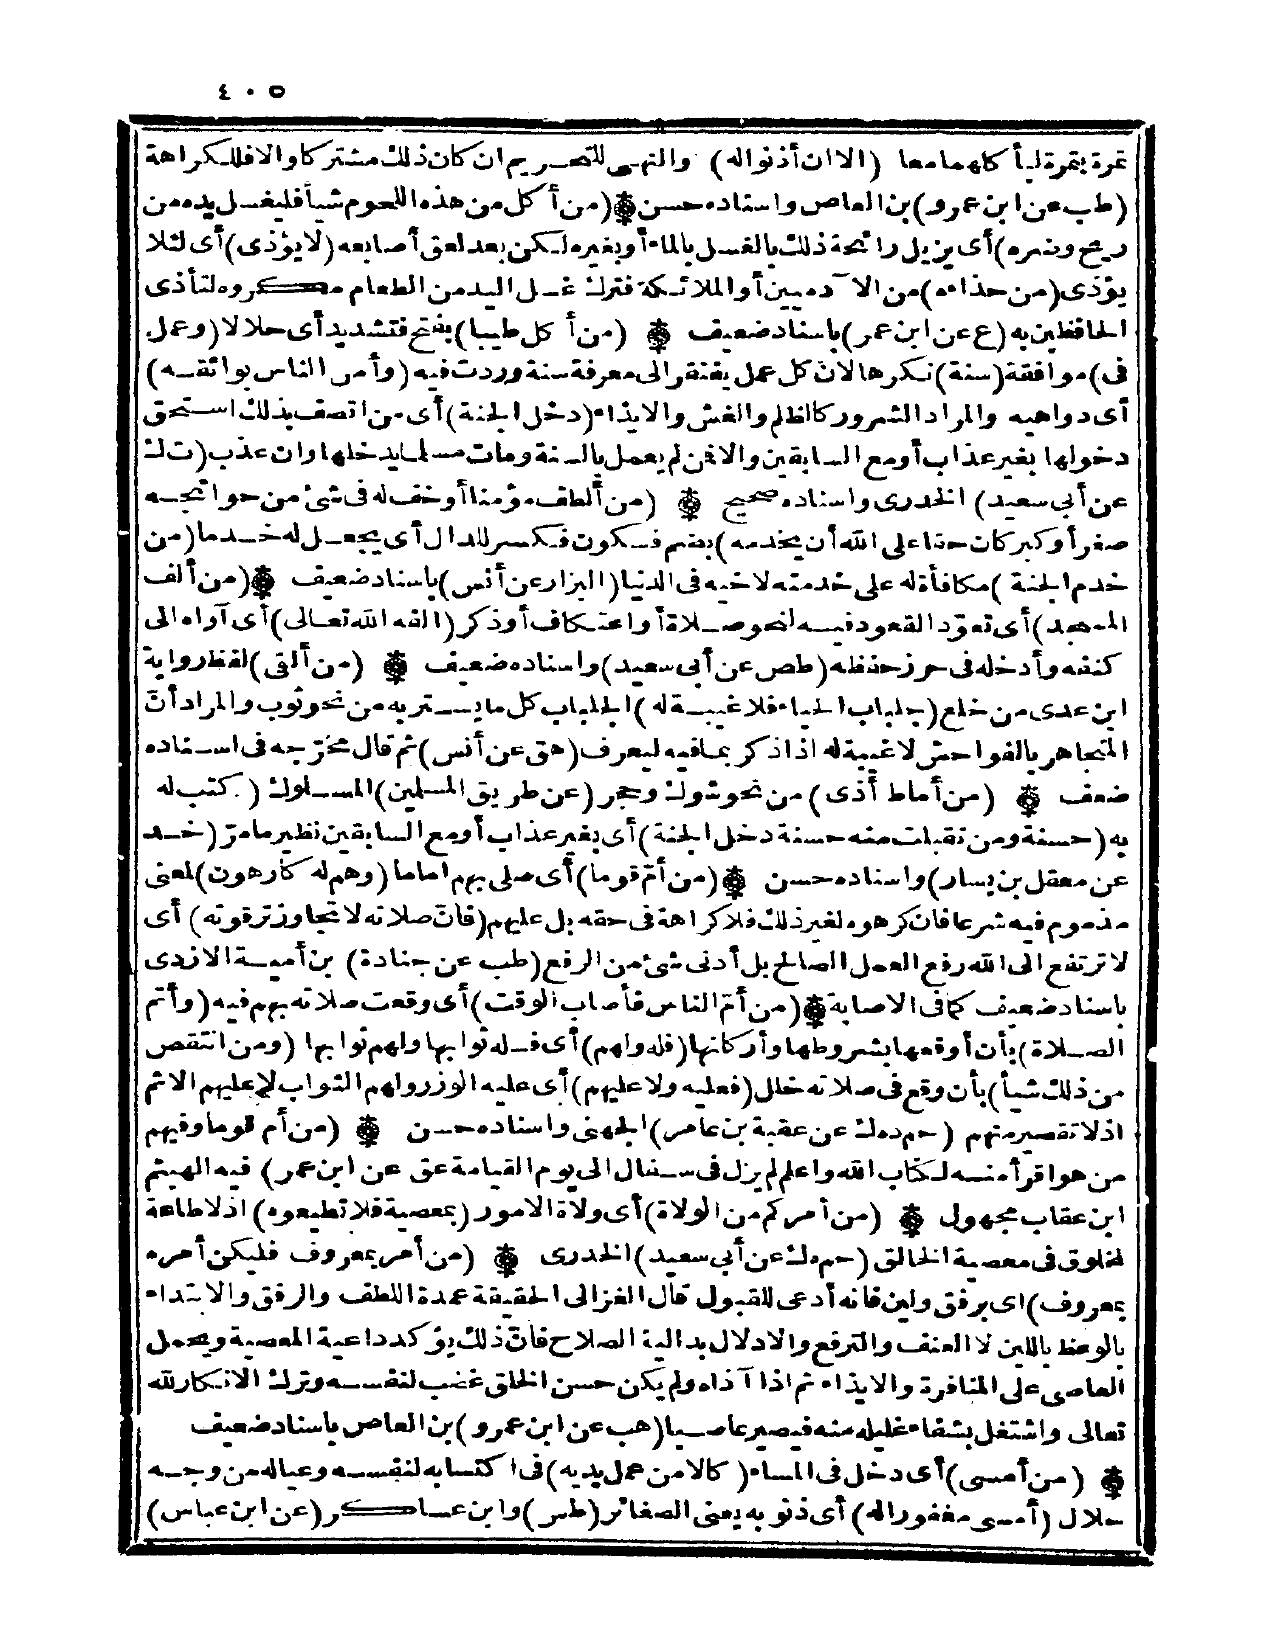 ٤٠٥
تمرة بتمرة ليأكلهما معا (الا ان أذنوا له) والنهى للتحريم ان كان ذلك مشتركا والا فللكراهة
(طب عن ابن عمرو) بن العاص واسناده حسن (من أكل من هذه اللحوم شيأ فليغسل يده من
ريح وضره) أى يزيل رائحة ذلك بالغسل بالماء أو بغيره لكن بعد لعق أصابعه (لا يؤذى) أى لئلا
يؤذى (من حذاءه) من الآدميين أو الملائكة فترك غسل اليد من الطعام مكروه لتأذى
الحافظين به (ع عن ابن عمر) باسناد ضعيف (من أكل طيبا) بفتح فتشديد أى حلالا (وعمل
فى) موافقة (سنة) نكرها لان كل عمل يفتقر الى معرفة سنة وردت فيه (وأمن الناس بوائقه)
أى دواهيه والمراد الشرور كالظلم والغش والايذاء (دخل الجنة) أى من اتصف بذلك استحق
دخولها بغير عذاب أو مع السابقين والا فمن لم يعمل بالسنة ومات مسلما يدخلها وان عذب (ت ك
عن أبى سعيد) الخدرى واسناده صحيح (من ألطف مؤمنا أو خف له فى شئ من حوائجه
صغر أو كبر كان حقا على الله أن يخدمه) بضم فسكون فكسر للدال أى يجعل له خدما (من
خدم الجنة) مكافأة له على خدمته لاخيه فى الدنيا (البزار عن أنس) باسناد ضعيف (من ألف
المسجد) أى تعوّد القعود فيه لنحو صلاة أو اعتكاف أو ذكر (الفه الله تعالى) أى آواه الى
كنفه وأدخله فى حرز حفظه (طص عن أبى سعيد) واسناده ضعيف (من ألقى) لفظ رواية
ابن عدى من خلع (جلباب الحياء فلا غيبة له) الجلباب كل ما يستتر به من نحو ثوب والمراد أنّ
المتجاهر بالفواحش لا غيبة له اذا ذكر بما فيه ليعرف (هق عن أنس) ثم قال مخرّجه فى اسناده
ضعف (من أماط أذى) من نحو شوك وحجر (عن طريق المسلمين) المسلوك (كتب له
به (حسنة ومن تقبلت منه حسنة دخل الجنة) أى بغير عذاب أو مع السابقين نظير ما مرّ (خد
عن معقل بن يسار) واسناده حسن (من أمّ قوما) أى صلى بهم اماما (وهم له كارهون) لمعنى
مذموم فيه شرعا فان كرهوه لغير ذلك فلا كراهة فى حقه بل عليهم (فانّ صلاته لا تجاوز ترقوته) أى
لا ترتفع الى الله رفع العمل الصالح بل أدنى شئ من الرفع (طب عن جنادة) بن أمية الازدى
باسناد ضعيف كما فى الاصابة (من أمّ الناس فأصاب الوقت) أى وقعت صلاته بهم فيه (وأتم
الصلاة) بأن أوقعها بشروطها وأركانها (فله ولهم) أى فله ثوابها ولهم ثوابها (ومن انتقص
من ذلك شيأ) بأن وقع فى صلاته خلل (فعليه ولا عليهم) أى عليه الوزر ولهم الثواب لا عليهم الاثم
اذ لا تقصير منهم (حم ده ك عن عقبة بن عامر) الجهنى واسناده حسن (من أم قوما وفيهم
من هو اقرأ منه لكتاب الله واعلم لم يزل فى سفال الى يوم القيامة عق عن ابن عمر) فيه الهيثم
ابن عقاب مجهول (من أمركم من الولاة) أى ولاة الامور (بمعصية فلا تطيعوه) اذ لا طاعة
لمخلوق فى معصية الخالق (حم ه ك عن أبى سعيد) الخدرى (من أمر بمعروف فليكن أمره
بمعروف) اى برفق ولين فانه أدعى للقبول قال الغزالى الحقيقة عمدة اللطف والرفق والابتداء
بالوعظ باللين لا العنف والترفع والادلال بدالية الصلاح فانّ ذلك يؤكد داعية المعصية ويحمل
العاصى على المنافرة والايذاء ثم اذا آذاه ولم يكن حسن الخلق غضب لنفسه وترك الانكار لله
تعالى واشتغل بشفاء غليله منه فيصير عاصيا (هب عن ابن عمرو) بن العاص باسناد ضعيف
(من أمسى) أى دخل فى المساء (كالا من عمل يديه) فى اكتسابه لنفسه وعياله من وجه
حلال (أمسى مغفورا له) أى ذنوبه يعنى الصغائر (طس) وابن عساكر (عن ابن عباس)